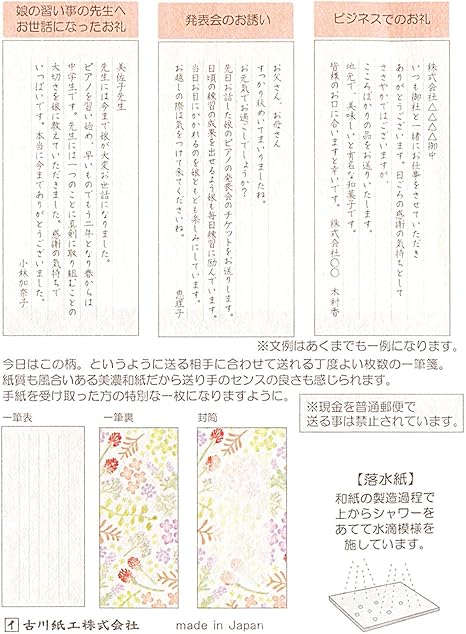 娘の習い事の先生へ
お世話になったお礼
美佐子先生
先生には今まで娘が大変お世話になりました。
ピアノを習い始め、早いものでもう二年となり春からは
中学生です。先生には一つのことに真剣に取り組むことの
大切さを娘に教えていただきました。感謝の気持ちで
いっぱいです。本当に今までありがとうございました。
小林加奈子
発表会のお誘い
お父さん、お母さん
すっかり秋めいてまいりましたね。
お元気でお過ごしでしょうか？
先日お話した娘のピアノの発表会のチケットをお送りします。
日頃の練習の成果を出せるよう娘も毎日練習に励んでいます。
当日お目にかかれるのを娘ともども楽しみにしています。
お越しの際は気をつけて来てくださいね。
恵理子
ビジネスでのお礼
株式会社△△△△御中
いつも御社と一緒にお仕事をさせていただき
ありがとうございます。日ごろの感謝の気持ちとして
ささやかではございますが、
こころばかりの品をお送りいたします。
地元で、美味しいと有名な和菓子です。
皆様のお口に合いますと幸いです。
株式会社〇〇　木村香
※文例はあくまでも一例になります。
今日はこの柄。というように送る相手に合わせて送れる丁度よい枚数の一筆箋。
紙質も風合いある美濃和紙だから送り手のセンスの良さも感じられます。
手紙を受け取った方の特別な一枚になりますように。
※現金を普通郵便で
送る事は禁止されています。
一筆表
一筆裏
封筒
【落水紙】
和紙の製造過程で
上からシャワーを
あてて水滴模様を
施しています。
イ 古川紙工株式会社
made in Japan